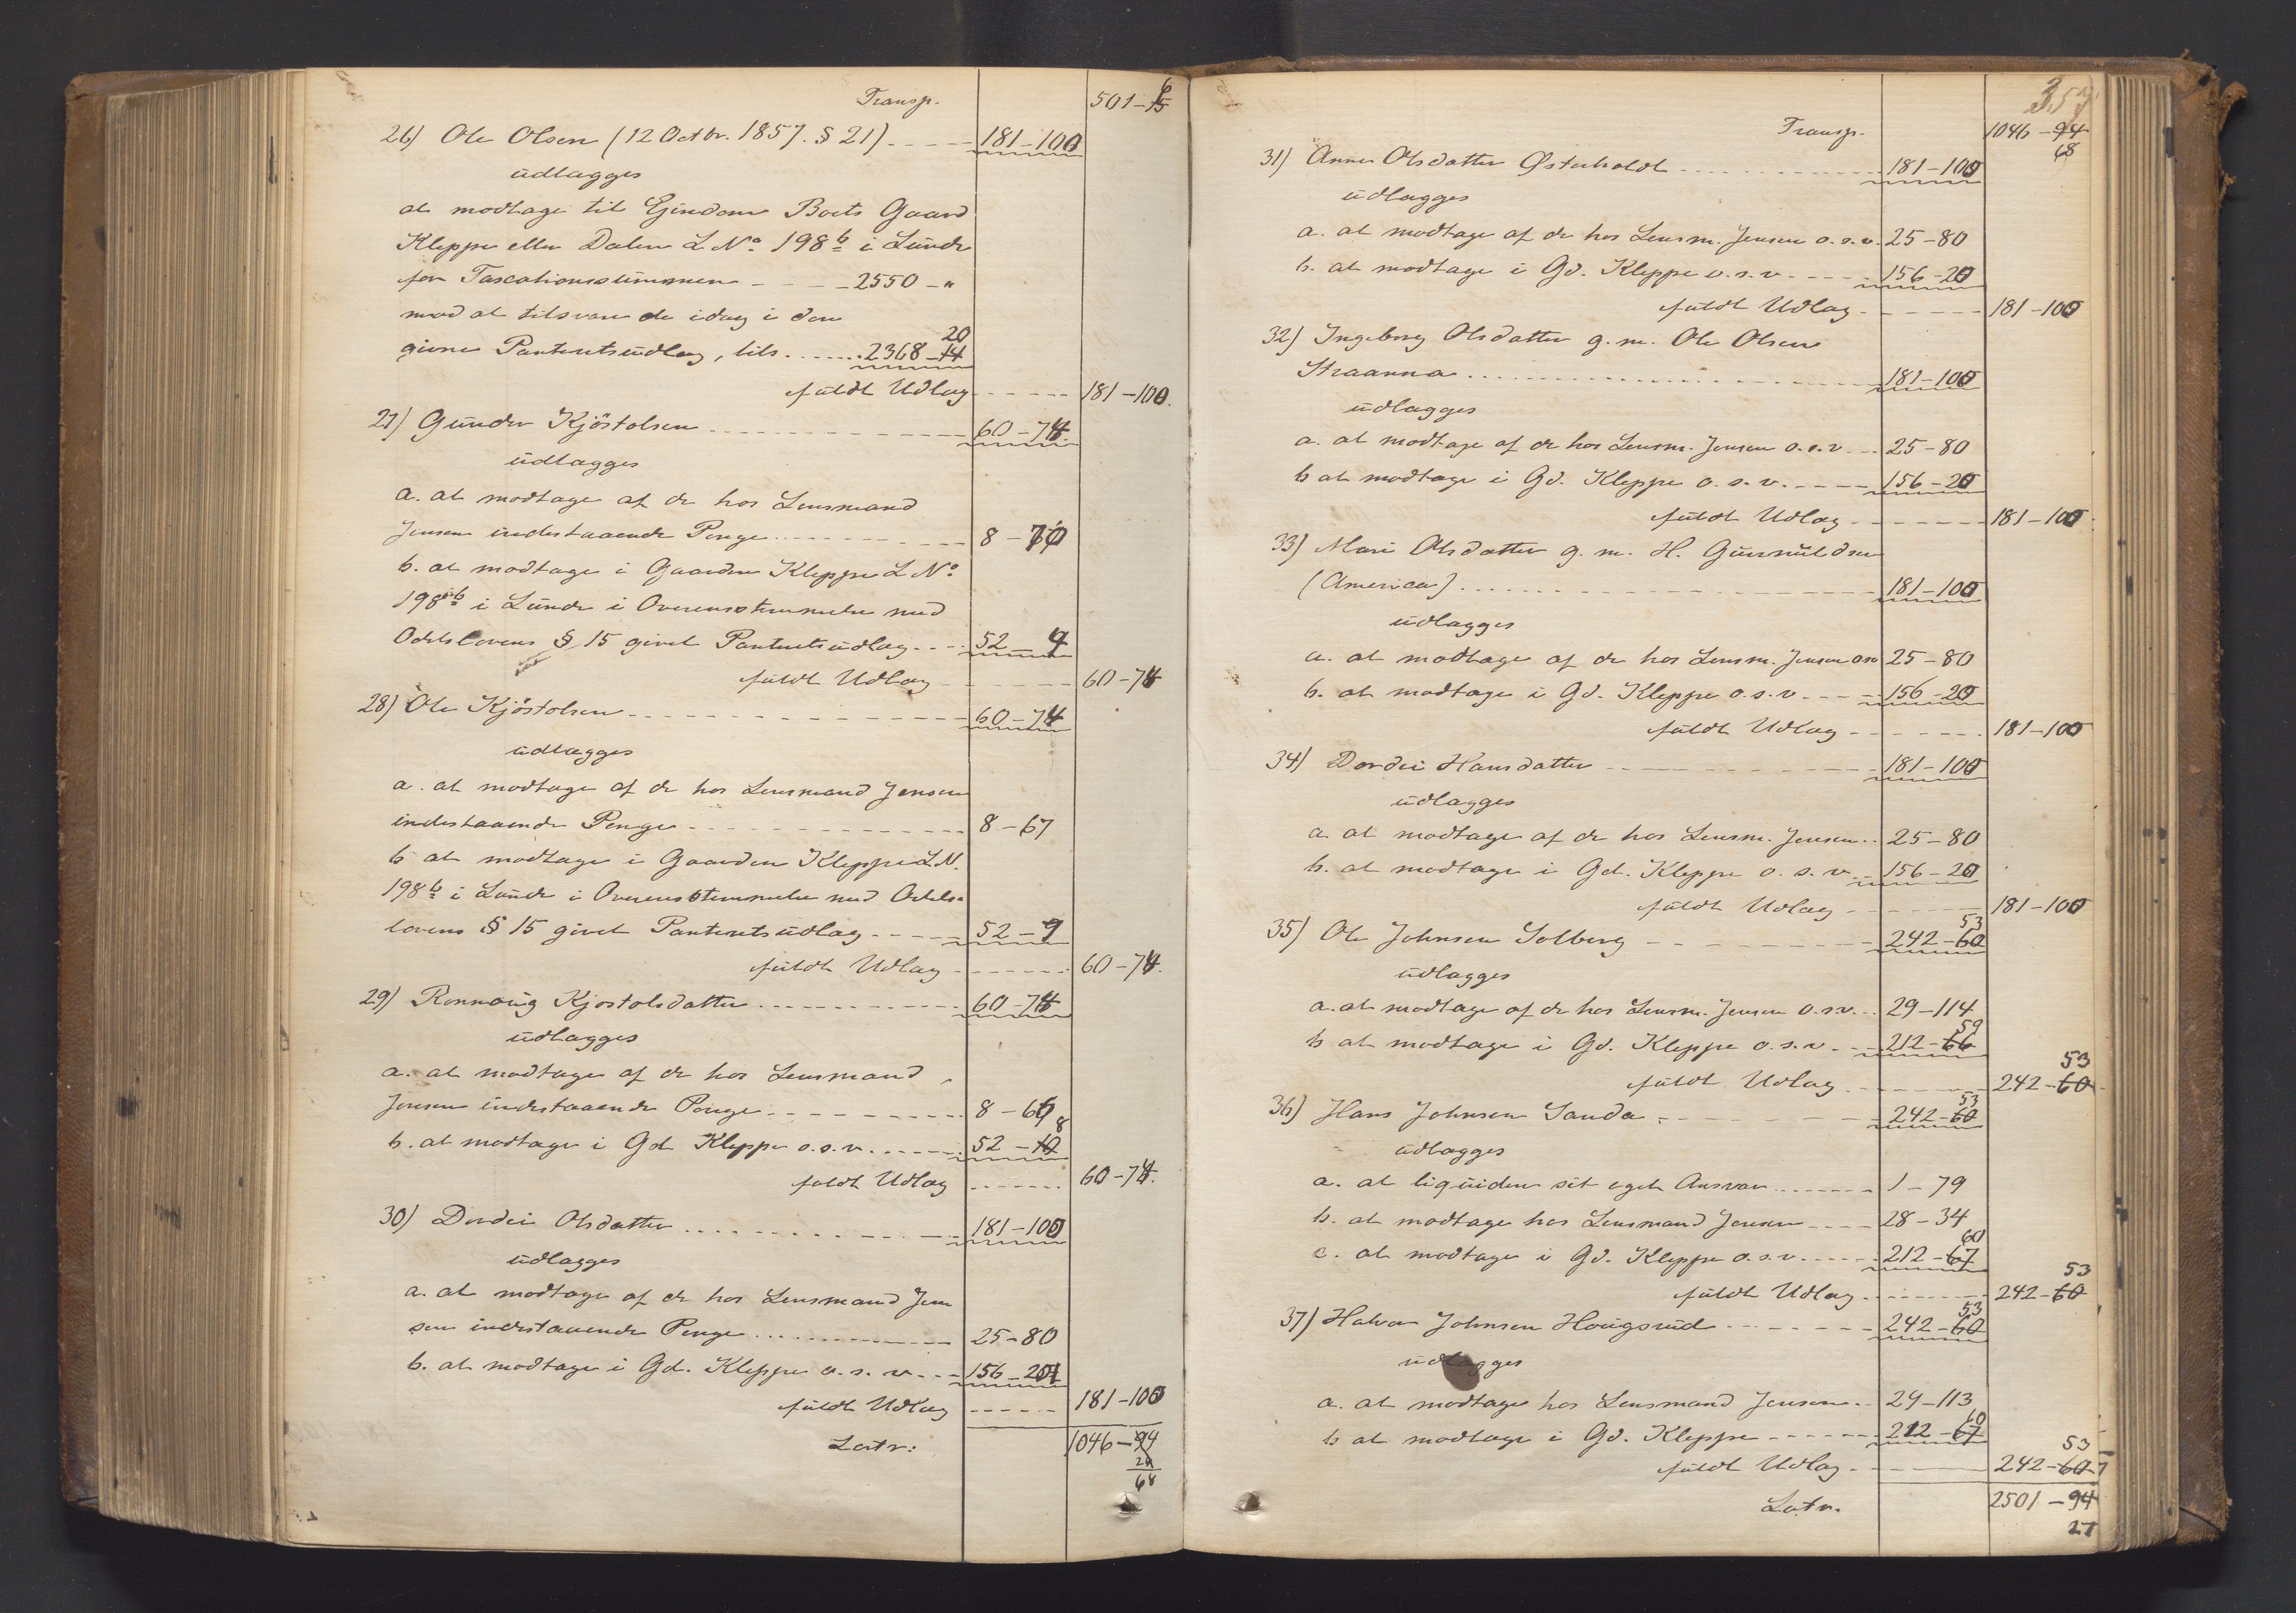 Transp. 501-6
26) Ole Olsen (12 Octbr. 1857. § 21) 181-100
udlægges
at modtage til Eiendom Boets Gaard
Kleppe eller Dalen L No 198b i Lunde
for Taxationssummen 2550 - "
mod at tilsvare de idag i den
givne Panteretsudlæg, tils. 2368-14 20
fuldt Udlæg 181-100.
27) Gunder Kjöstolsen 60-74
udlægges
a. at modtage af de hos Lensmand
Jensen indestaaende Penge 8-70
b. at modtage i Gaarden Kleppe L No
198b i Lunde i Overensstemmelse med
Odelslovens § 15 givet Panteretsudlæg 52-4
fuldt Udlæg 60-74
28) Ole Kjöstolsen 60-74
udlægges
a. at modtage af de hos Lensmand Jensen
indestaaende Penge 8-67
b at modtage i Gaarden Kleppe L N.
198b i Lunde i Overensstemmelse med Odels-
lovens § 15 givet Panteretsudlæg 52-9
fuldt Udlæg 60-74.
29) Ronnoug Kjostolsdatter 60-74
udlægges
a. at modtage af de hos Lensmand
Jensen indestaaende Penge 8-67
b. at modtage i Gd Kleppe o.s.v. 52-10 8
fuldt Udlæg 60-74.
30) Dordei Olsdatter 181-100
udlægges
a. at modtage af de hos Lensmand Jen
sen indestaaende Penge 25-80
b. at modtage i Gd. Kleppe o.s.v. 156-20
fuldt Udlæg 181-100
Latr: 1046-94
26
68
353
Transp. 1046-94
68
31) Anne Olsdatter Østerholdt 181-100
udlægges
a. at modtage af de hos Lensm. Jensen o.s.v. 25-80
b. at modtage i Gd. Kleppe o.s.v. 156-20
fuldt Udlæg 181-100
32) Ingeborg Olsdatter g. m. Ole Olsen
Straanna 181-100
udlægges
a. at modtage af de hos Lensm. Jensen o.s.v 25-80
b at modtage i Gd. Kleppe o.s.v. 156-20
fuldt Udlæg 181-100
33) Mari Olsdatter g. m. H. Gunnuldsen
(America) 181-100
udlægges
a. at modtage af de hos Lensm. Jensen osv 25-80
b. at modtage i Gd. Kleppe o.s.v. 156-20
fuldt Udlæg 181-100
34) Dordei Hansdatter 181-100
udlægges
a at modtage af de hos Lensm. Jensen 25-80
b. at modtage i Gd. Kleppe o.s.v. 156-20
fuldt Udlæg 181-100
35) Ole Johnsen Solberg 242-60 53
udlægges
a. at modtage af de hos Lensm. Jensen o.s.v. 29-114
b at modtage i Gd. Kleppe o.s.v. 212-66 59
fuldt Udlæg 242-60 53
36) Hans Johnsen Sanda 242-60 53
udlægges
a. at liqüidere sit eget Ansvar 1-79
b. at modtage hos Lensmand Jensen 28-34
c. at modtage i Gd. Kleppe o.s.v. 212-67 60
fuldt Udlæg 242-60 53
37) Halvor Johnsen Hougsrud 242-60 53
udlægges
a. at modtage hos Lensmand Jensen 29-113
b at modtage i Gd. Kleppe 212-67 60
fuldt Udlæg 242-60 53
Latr. 2501-94
27